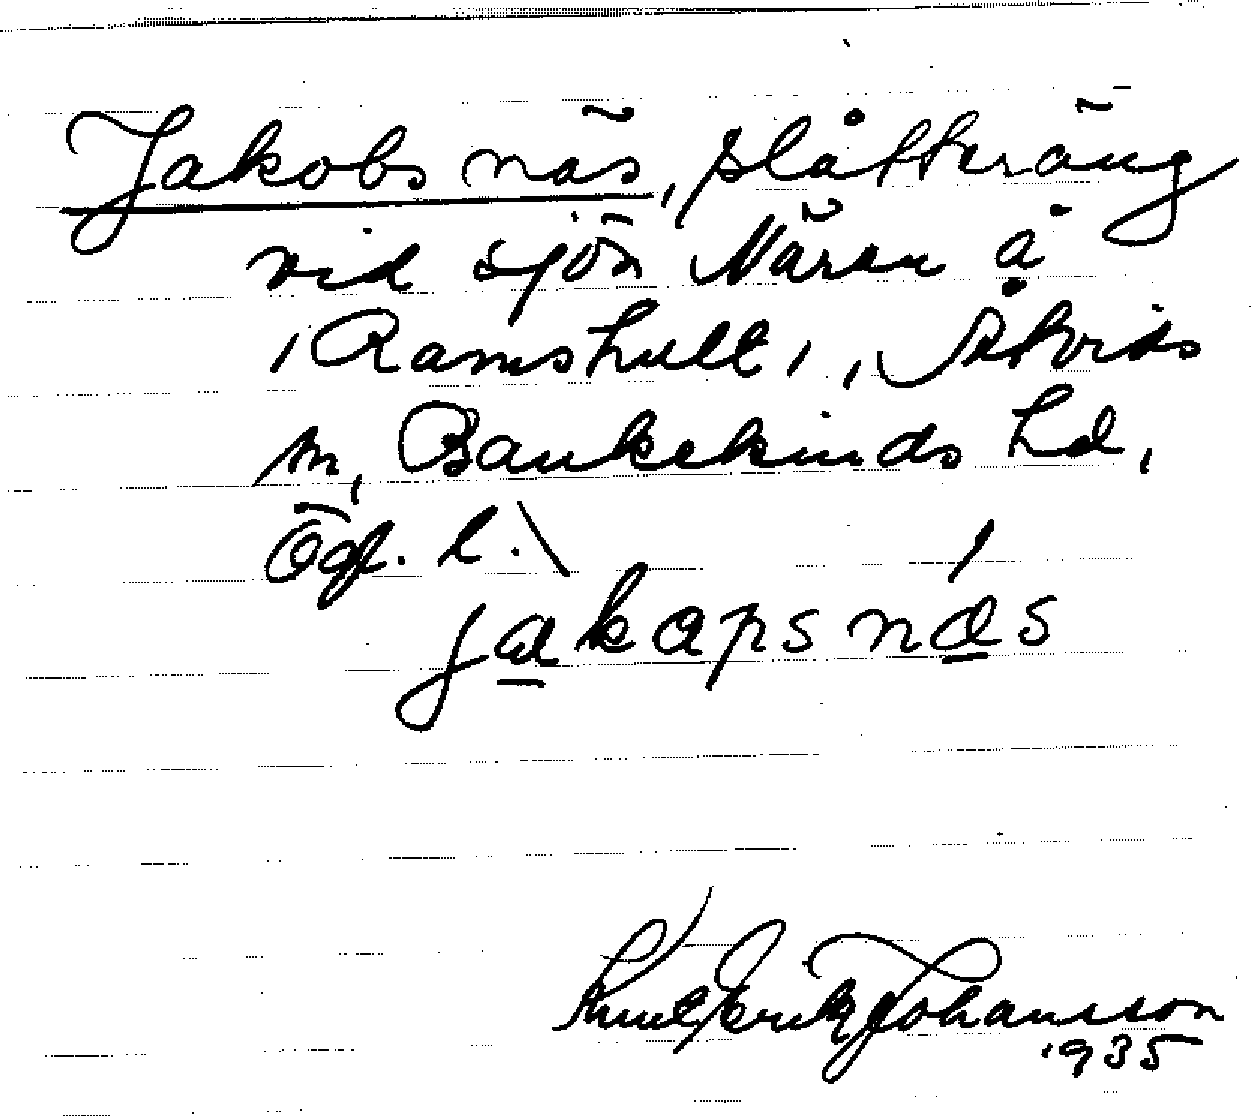 Jakobs näs, slåtteräng
vid sjön Nären å
Ramshult, Åtvids
sn, Bankekinds hd,
Ögl. l.
jakaps nas
Knut Erik Johansson
1935